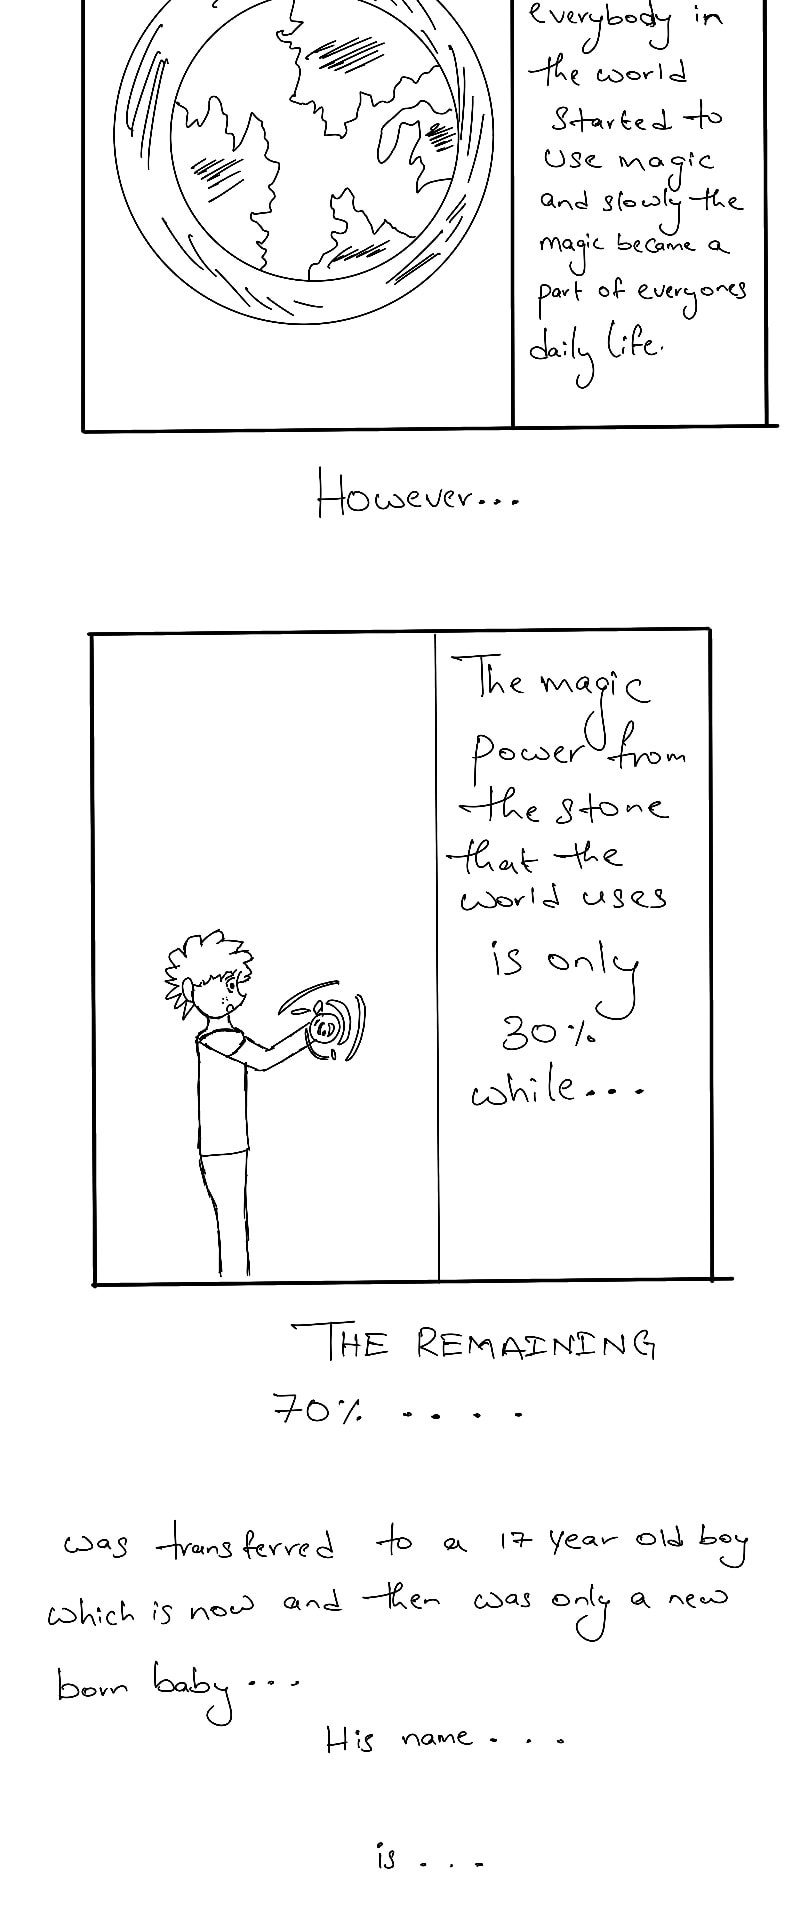 everybody in
the world
started to
use magic
and slowly the
magic became a
part of everyones
daily life.
However...
The magic
power from
the stone
that the
world uses
is only
30%
while...
THE REMAINING
70% ....
was transferred to a 17 year old boy
which is now and then was only a new
born baby...
His name...
is...